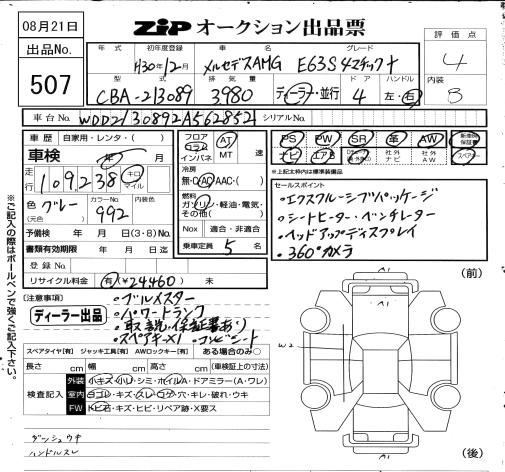 08月21日
ZIP オークション出品票
出品No.
507
評価点
4
内装
B
年式 初年度登録 車名 グレード
H30年12月 メルセデスAMG E63S 4マチック+
型式 排気量 ドア ハンドル
CBA-213089 3980 ディーラー・並行 4 左・右
車台No. WDD2130892A562852 シリアルNo.
車歴 自家用・レンタ・( )
車検 年 月
走行 109,238 キロ マイル
色 グレー
(元色)
カラーNo. 992
内装色
予備検 年 月 日(3・8)No.
書類有効期限 年 月 日迄
登録No.
リサイクル料金 有(¥24460) 未
フロア コラム インパネ
AT MT 速
冷房
無・C・AC・AAC・( )
燃料
ガソリン・軽油・電気・その他( )
Nox 適合・非適合
乗車定員 5 名
PS PW SR 革 AW 新車時保証書
ナビ エアB 社外ナビ 社外AW スペアキー
※上記太枠内は標準装備品
セールスポイント
・エクスクルーシブパッケージ
・シートヒーター・ベンチレーター
・ヘッドアップディスプレイ
・360°カメラ
(注意事項)
ディーラー出品
・ブルメスター
・パワートランク
・取説・保証書あり
・スペアキー×1
スペアタイヤ[有] ジャッキ工具[有] AWロックキー[有] ある場合のみ○
長さ cm 幅 cm 高さ cm (車検証上の寸法)
検査記入
外装 小キズ・小ヘコ・シミ・ホイルA・ドアミラー(A・ワレ)
室内 ヨゴレ・キズ・スレ・コゲ・穴・キレ・破れ・ウキ
FW トビ石・キズ・ヒビ・リペア跡・X要ス
ダッシュウキ
ハンドルスレ
(前)
A1
A1
W2
A1
(後)
※ご記入の際はボールペンで強くご記入下さい。